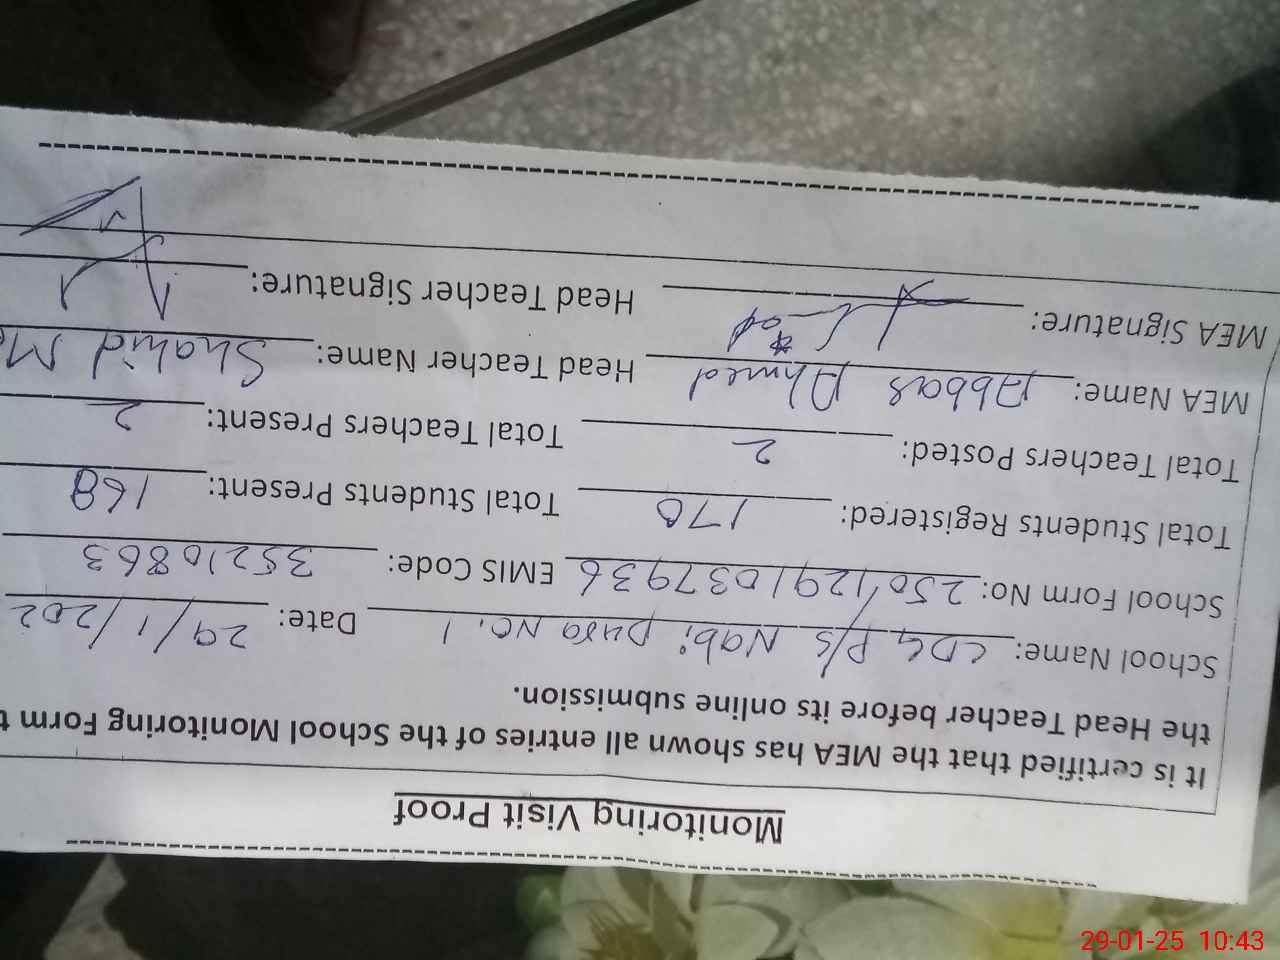 Monitoring Visit Proof
It is certified that the MEA has shown all entries of the School Monitoring Form t
the Head Teacher before its online submission.
School Name: CDG P/S Nabi Pura NO. 1 Date: 29/1/202
School Form No: 2501291037936 EMIS Code: 35210863
Total Students Registered: 170 Total Students Present: 168
Total Teachers Posted: 2 Total Teachers Present: 2
MEA Name: Abbas Ahmed Head Teacher Name: Shahid M
MEA Signature: Head Teacher Signature:
29-01-25 10:43